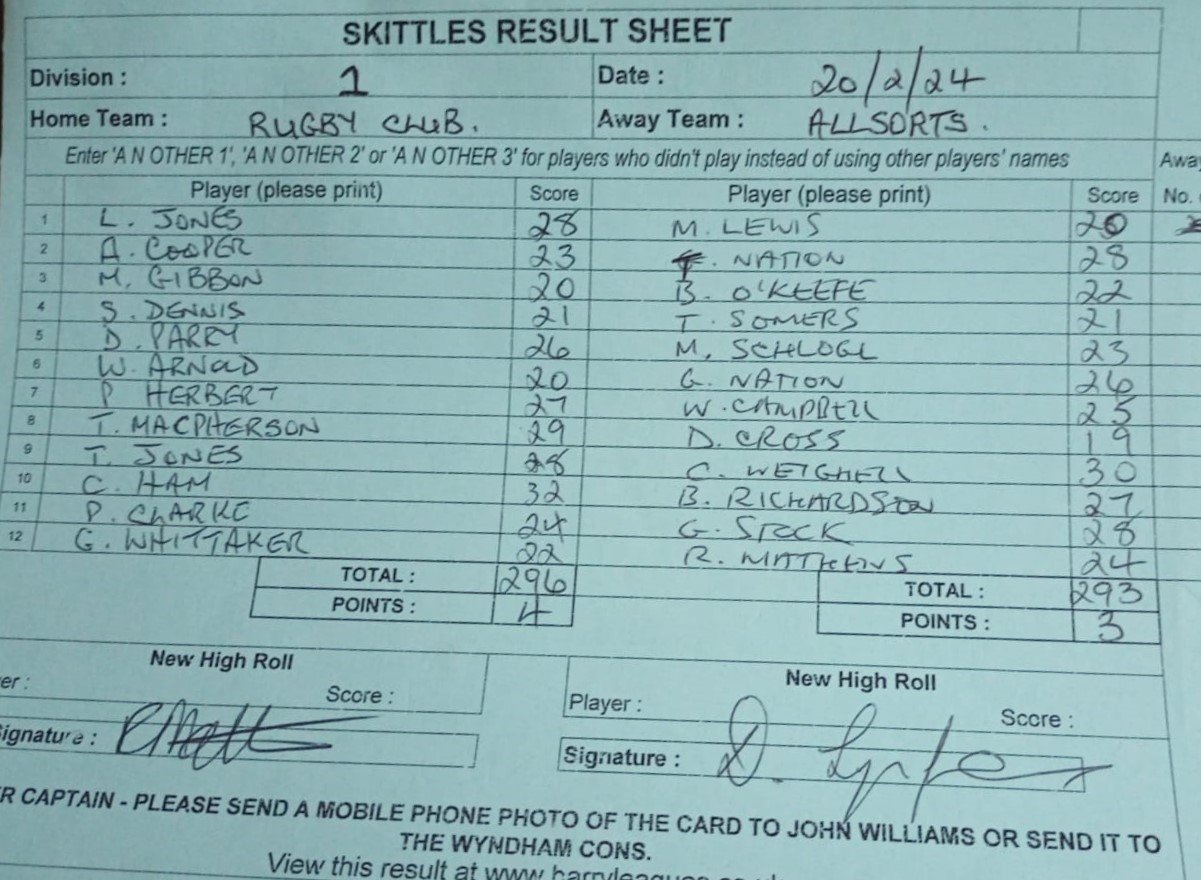 SKITTLES RESULT SHEET
Division : 1 Date : 20/2/24
Home Team : RUGBY CLUB. Away Team : ALLSORTS.
Enter 'A N OTHER 1', 'A N OTHER 2' or 'A N OTHER 3' for players who didn't play instead of using other players' names Away
Player (please print) Score Player (please print) Score No.
1 L. JONES 28 M. LEWIS 20
2 A. COOPER 23 F. NATION 28
3 M. GIBBON 20 B. O'KEEFE 22
4 S. DENNIS 21 T. SOMERS 21
5 D. PARRY 26 M. SCHLOGL 23
6 W. ARNOLD 20 G. NATION 26
7 P HERBERT 27 W. CAMPBELL 25
8 T. MACPHERSON 29 D. CROSS 19
9 T. JONES 28 C. WEIGHELL 30
10 C. HAM 32 B. RICHARDSON 27
11 P. CLARKE 24 G. STOCK 28
12 G. WHITTAKER 22 R. MATHEWS 24
TOTAL : 296 TOTAL : 293
POINTS : 4 POINTS : 3
New High Roll New High Roll
er : Score : Player : Score :
ignature : Signature :
R CAPTAIN - PLEASE SEND A MOBILE PHONE PHOTO OF THE CARD TO JOHN WILLIAMS OR SEND IT TO
THE WYNDHAM CONS.
View this result at www.barryleagues